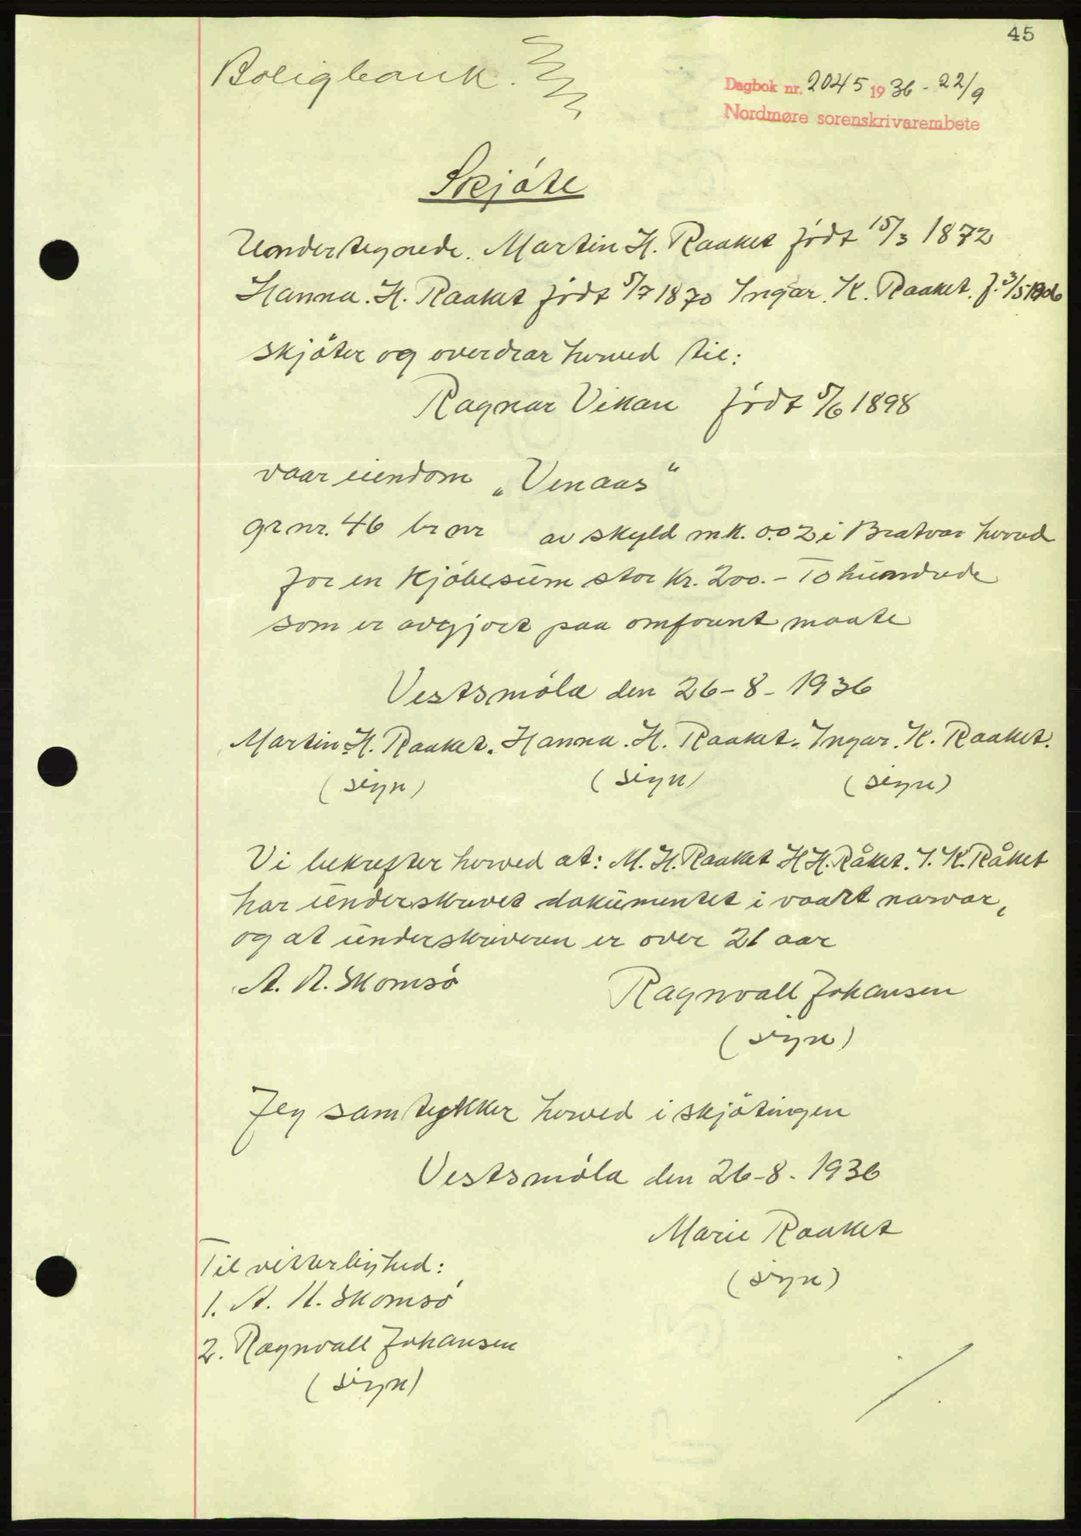 45
Boligbank.
Dagbok nr. 2045 1936 - 22/9
Nordmøre sorenskrivarembete
Skjöte
Undertegnede. Martin H. Raaket født 15/3 1872
Hanna. H. Raaket født 5/7 1870 Ingar. K. Raaket. f. 3/5 1906
skjöter og overdrar herved til:
Ragnar Vikan født 5/6 1898
vaar eiendom „Venaas“
gr nr. 46 br nr av skyld mk. 0.02 i Bratvær herred
for en kjöbesum stor kr. 200.- To hundrede
som er avgjort paa omforent maate
Vestsmöla den 26-8-1936
Martin H. Raaket. Hanna. H. Raaket. Ingar. K. Raaket.
(sign) (sign) (sign)
Vi bekrefter herved at: M. H. Raaket H H. Råket. I. K. Råket
har underskrevet dokumentet i vaart nærvær,
og at underskriveren er over 21 aar
A. N. Skomsö Ragnvall Johansen
(sign)
Jeg samtykker herved i skjötingen
Vestsmöla den 26-8-1936
Marie Raaket
(sign)
Til vitterlighed:
1. A. N. Skomsö
2. Ragnvall Johansen
(sign)